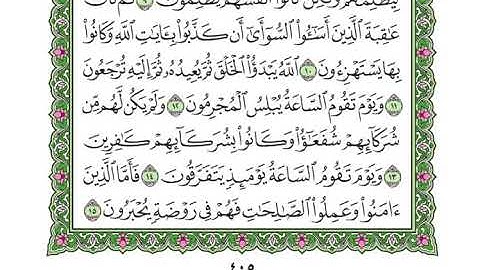 يَظْلِمُونَ ٩ ثُمَّ كَانَ
عَٰقِبَةَ ٱلَّذِينَ أَسَٰٓـُٔوا۟ ٱلسُّوٓأَىٰٓ أَن كَذَّبُوا۟ بِـَٔايَٰتِ ٱللَّهِ وَكَانُوا۟
بِهَا يَسْتَهْزِءُونَ ١٠ ٱللَّهُ يَبْدَؤُا۟ ٱلْخَلْقَ ثُمَّ يُعِيدُهُۥ ثُمَّ إِلَيْهِ تُرْجَعُونَ
١١ وَيَوْمَ تَقُومُ ٱلسَّاعَةُ يُبْلِسُ ٱلْمُجْرِمُونَ ١٢ وَلَمْ يَكُن لَّهُم مِّن
شُرَكَآئِهِمْ شُفَعَٰٓؤُا۟ وَكَانُوا۟ بِشُرَكَآئِهِمْ كَٰفِرِينَ
١٣ وَيَوْمَ تَقُومُ ٱلسَّاعَةُ يَوْمَئِذٍ يَتَفَرَّقُونَ ١٤ فَأَمَّا ٱلَّذِينَ
ءَامَنُوا۟ وَعَمِلُوا۟ ٱلصَّٰلِحَٰتِ فَهُمْ فِى رَوْضَةٍ يُحْبَرُونَ ١٥